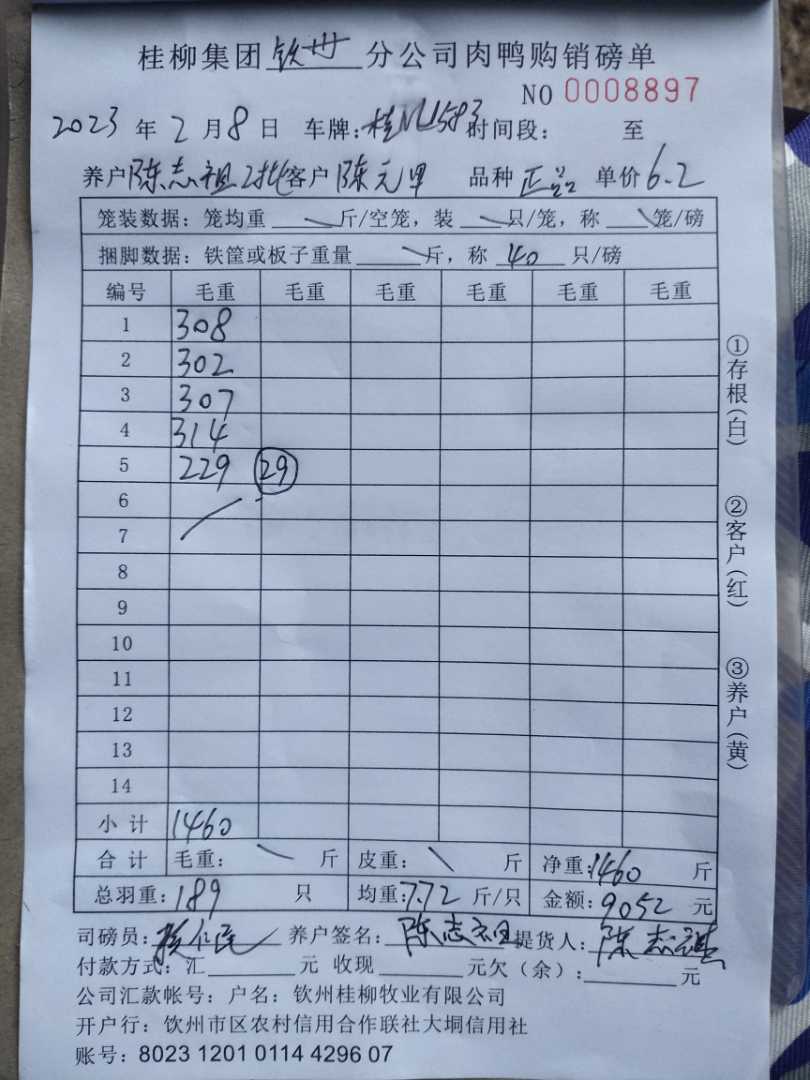 桂柳集团钦州分公司肉鸭购销磅单
NO 0008897
2023年2月8日 车牌:桂N11583时间段: 至
养户陈志祖2批客户陈元甲 品种正品 单价6.2
笼装数据:笼均重 斤/空笼,装 只/笼,称 笼/磅
捆脚数据:铁筐或板子重量 斤,称 40 只/磅
编号 毛重 毛重 毛重 毛重 毛重 毛重
1 308
2 302
3 307
4 314
5 229 29
6
7
8
9
10
11
12
13
14
小计 1460
合计 毛重: 斤 皮重: 斤 净重:1460 斤
总羽重:189 只 均重:7.72 斤/只 金额:9052 元
司磅员: 养户签名:陈志祖 提货人:陈志祺
付款方式:汇 元 收现 元欠(余): 元
公司汇款帐号:户名:钦州桂柳牧业有限公司
开户行:钦州市区农村信用合作联社大垌信用社
账号:8023 1201 0114 4296 07
①存根(白)
②客户(红)
③养户(黄)